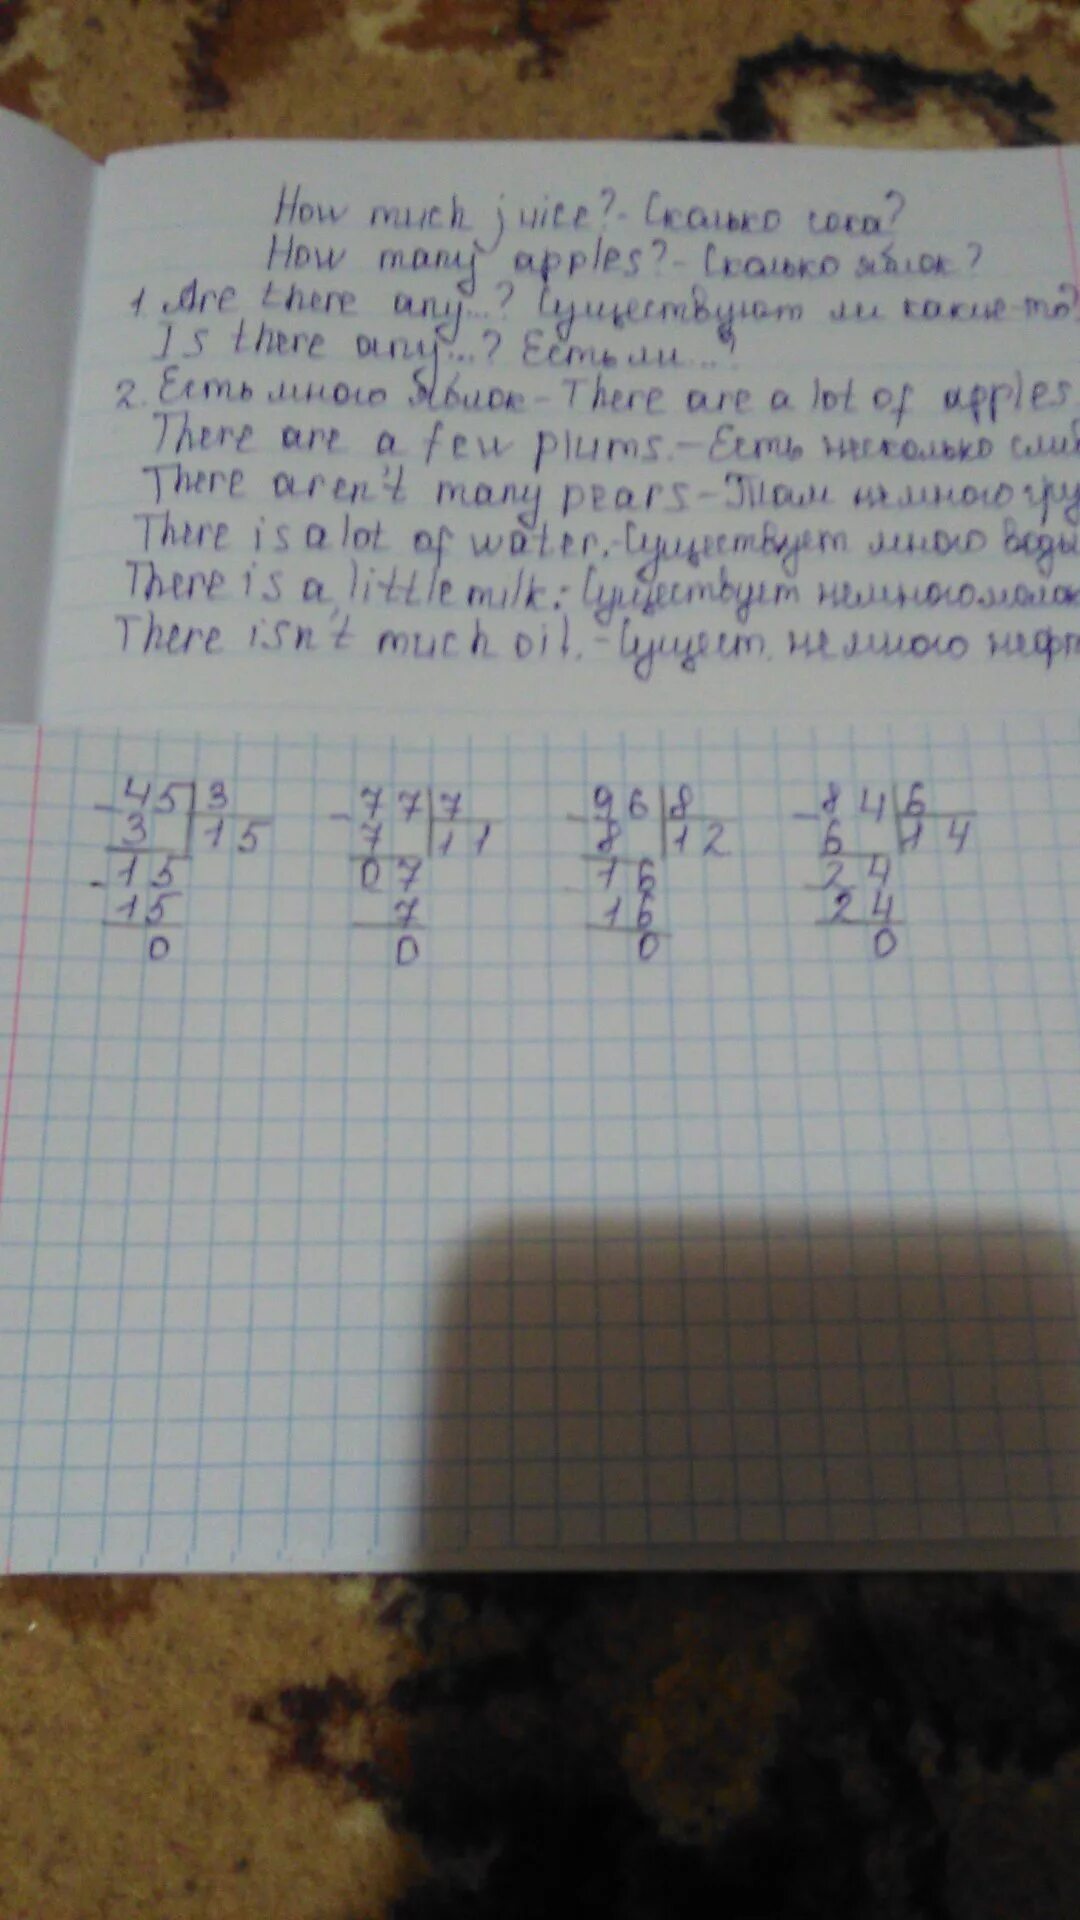 How much juice? - Сколько сока?
How many apples? - Сколько яблок?
1. Are there any...? Существуют ли какие-то?
Is there any...? Есть ли...?
2. Есть много яблок - There are a lot of apples.
There are a few plums. - Есть несколько слив
There aren't many pears - Там немного гру
There is a lot of water. - Существует много воды
There is a little milk. - Существует немного молок
There isn't much oil. - Сущест. немного нефт
- 45 3 - 77 7 - 96 8 - 84 6
3 15 7 11 8 12 6 14
- 15 07 - 16 - 24
15 7 16 24
0 0 0 0